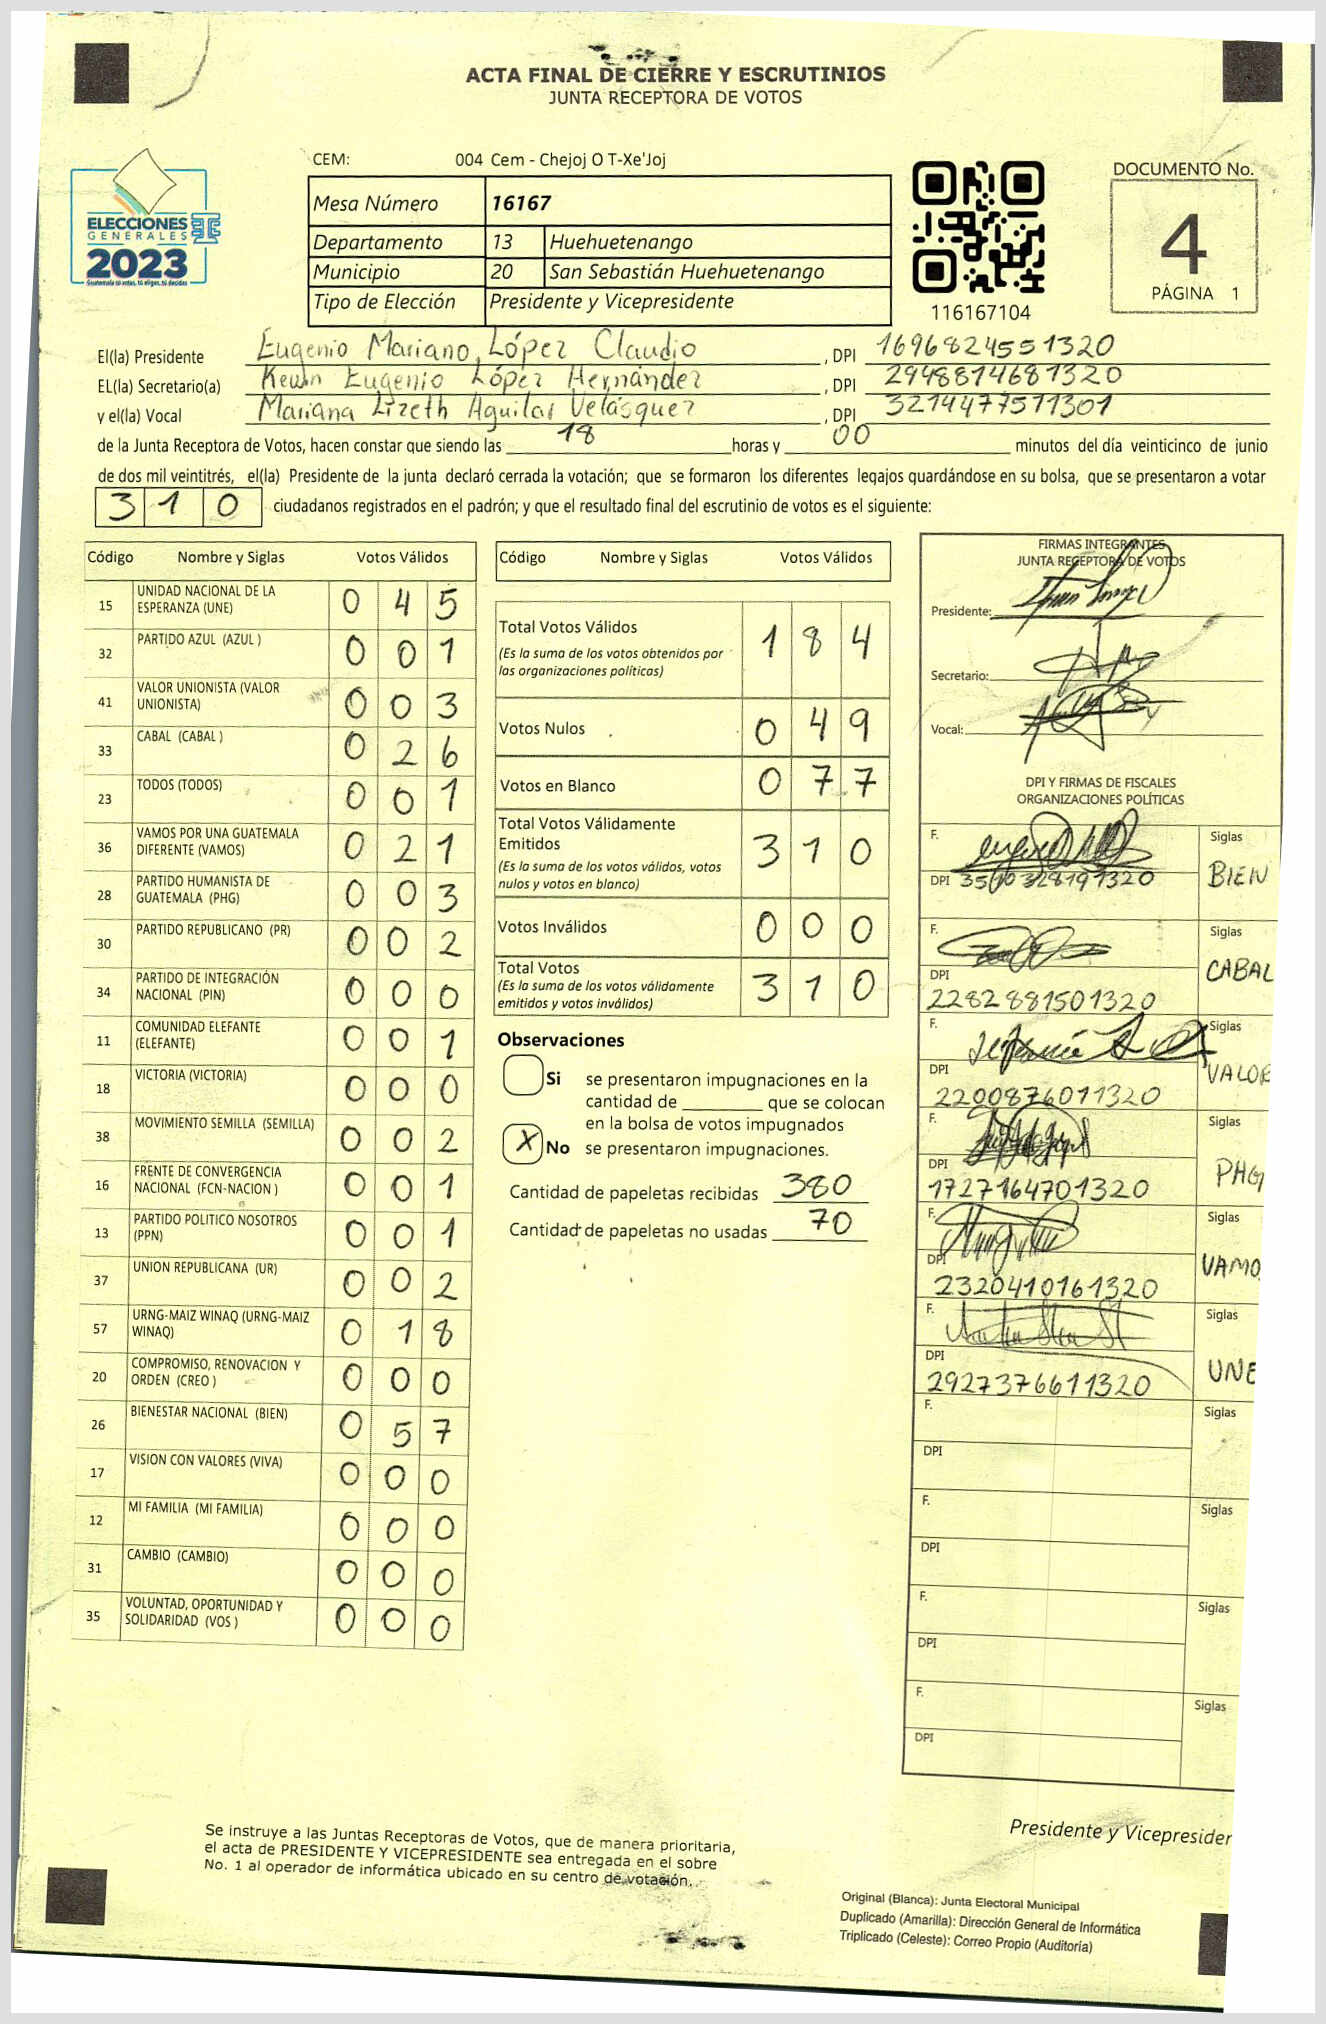 ACTA FINAL DE CIERRE Y ESCRUTINIOS
JUNTA RECEPTORA DE VOTOS
CEM: 004 Cem - Chejoj O T-Xe'Joj
ELECCIONES
GENERALES
2023
Guatemala tú votas, tú eliges, tú decides
Mesa Número 16167
Departamento 13 Huehuetenango
Municipio 20 San Sebastián Huehuetenango
Tipo de Elección Presidente y Vicepresidente
116167104
DOCUMENTO No.
4
PÁGINA 1
El(la) Presidente Eugenio Mariano López Claudio, DPI 1696824551320
EL(la) Secretario(a) Kewin Eugenio López Hernández, DPI 2948814681320
y el(la) Vocal Mariana Lizeth Aguilar Velásquez, DPI 3214477511301
de la Junta Receptora de Votos, hacen constar que siendo las 18 horas y 00 minutos del día veinticinco de junio
de dos mil veintitrés, el(la) Presidente de la junta declaró cerrada la votación; que se formaron los diferentes legajos quardándose en su bolsa, que se presentaron a votar
310 ciudadanos registrados en el padrón; y que el resultado final del escrutinio de votos es el siguiente:
Código Nombre y Siglas Votos Válidos
15 UNIDAD NACIONAL DE LA ESPERANZA (UNE) 0 4 5
32 PARTIDO AZUL (AZUL ) 0 0 1
41 VALOR UNIONISTA (VALOR UNIONISTA) 0 0 3
33 CABAL (CABAL ) 0 2 6
23 TODOS (TODOS) 0 0 1
36 VAMOS POR UNA GUATEMALA DIFERENTE (VAMOS) 0 2 1
28 PARTIDO HUMANISTA DE GUATEMALA (PHG) 0 0 3
30 PARTIDO REPUBLICANO (PR) 0 0 2
34 PARTIDO DE INTEGRACIÓN NACIONAL (PIN) 0 0 0
11 COMUNIDAD ELEFANTE (ELEFANTE) 0 0 1
18 VICTORIA (VICTORIA) 0 0 0
38 MOVIMIENTO SEMILLA (SEMILLA) 0 0 2
16 FRENTE DE CONVERGENCIA NACIONAL (FCN-NACION ) 0 0 1
13 PARTIDO POLITICO NOSOTROS (PPN) 0 0 1
37 UNION REPUBLICANA (UR) 0 0 2
57 URNG-MAIZ WINAQ (URNG-MAIZ WINAQ) 0 1 8
20 COMPROMISO, RENOVACION Y ORDEN (CREO ) 0 0 0
26 BIENESTAR NACIONAL (BIEN) 0 5 7
17 VISION CON VALORES (VIVA) 0 0 0
12 MI FAMILIA (MI FAMILIA) 0 0 0
31 CAMBIO (CAMBIO) 0 0 0
35 VOLUNTAD, OPORTUNIDAD Y SOLIDARIDAD (VOS ) 0 0 0
Código Nombre y Siglas Votos Válidos
Total Votos Válidos 1 8 4
(Es la suma de los votos obtenidos por
las organizaciones políticas)
Votos Nulos 0 4 9
Votos en Blanco 0 7 7
Total Votos Válidamente
Emitidos 3 1 0
(Es la suma de los votos válidos, votos
nulos y votos en blanco)
Votos Inválidos 0 0 0
Total Votos 3 1 0
(Es la suma de los votos válidamente
emitidos y votos inválidos)
Observaciones
Si se presentaron impugnaciones en la
cantidad de ________ que se colocan
en la bolsa de votos impugnados
X No se presentaron impugnaciones.
Cantidad de papeletas recibidas 380
Cantidad de papeletas no usadas 70
FIRMAS INTEGRANTES
JUNTA RECEPTORA DE VOTOS
Presidente:
Secretario:
Vocal:
DPI Y FIRMAS DE FISCALES
ORGANIZACIONES POLÍTICAS
F. Siglas
DPI BIEN
F. Siglas
DPI 2282881501320 CABAL
F. Siglas
DPI 2200876011320 VALOR
F. Siglas
DPI 1727164701320 PHG
F. Siglas
DPI 2320410161320 VAMO
F. Siglas
DPI 2927376611320 UNE
F. Siglas
DPI
F. Siglas
DPI
F. Siglas
DPI
F. Siglas
DPI
Presidente y Vicepresiden
Se instruye a las Juntas Receptoras de Votos, que de manera prioritaria,
el acta de PRESIDENTE Y VICEPRESIDENTE sea entregada en el sobre
No. 1 al operador de informática ubicado en su centro de votación.
Original (Blanca): Junta Electoral Municipal
Duplicado (Amarilla): Dirección General de Informática
Triplicado (Celeste): Correo Propio (Auditoría)